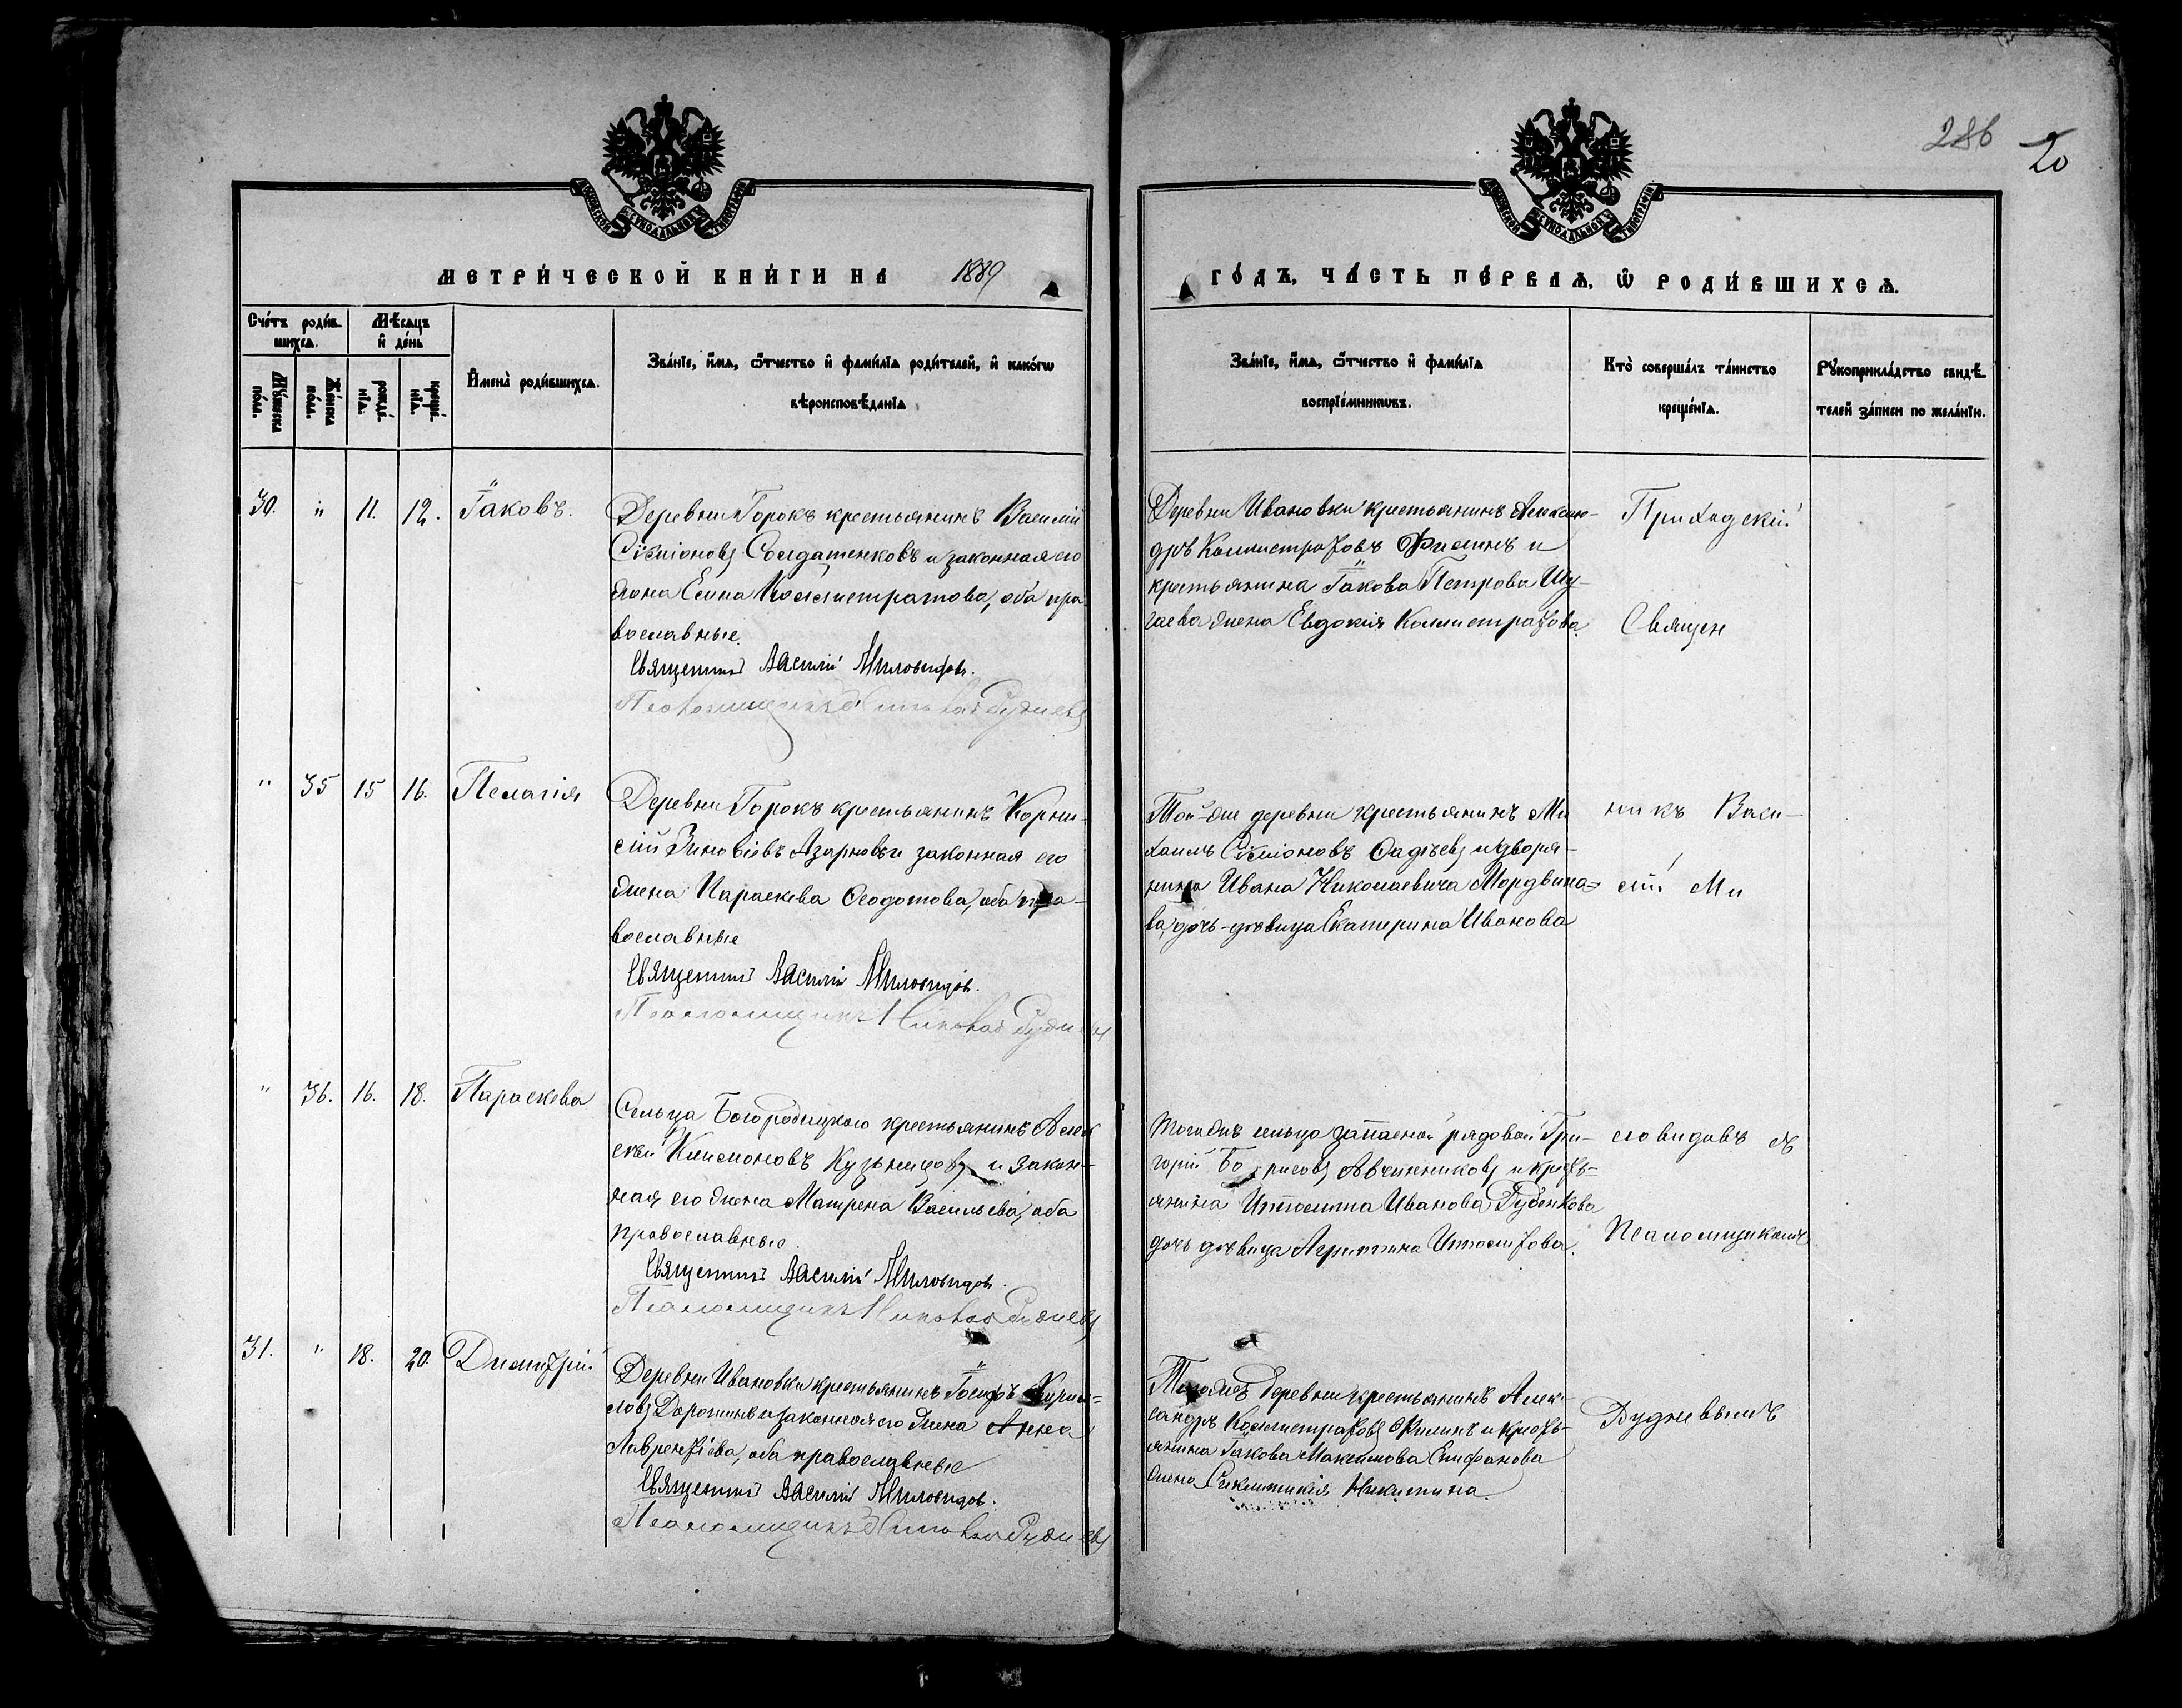 286 20
МЕТРИ́ЧЕСКОЙ КНИ́ГИ НА 1889
ГО́ДЪ, ЧА́СТЬ ПЕ́РВАѦ, Ѡ҆ РОДИ́ВШИХСѦ.
Сче́тъ роди́в-
шихсѧ.
Мѣ́сѧцъ
и҆ де́нь
И҆мена̀ роди́вшихсѧ.
Зва́нїе, и҆́мѧ, ѻ҆́тчество и҆ фами́лїѧ роди́телей, и҆ како́гѡ
вѣроисповѣ́данїѧ
Мꙋ́жеска
по́ла.
Же́нска
по́ла.
рожде́-
нїѧ.
креще́-
нїѧ.
Зва́нїе, и҆́мѧ, ѻ҆́тчество и҆ фами́лїѧ
воспрїе́мникѡвъ.
Кто̀ соверша́лъ та́инство
креще́нїѧ.
Рꙋкоприкла́дство свидѣ́-
телей за́писи по жела́нїю.
30. " 11. 12. Іаковъ.
Деревни Горокъ крестьянинъ Василій
Сѷмеоновъ Солдатенковъ и законная его
жена Елена Каллистратова, оба пра-
вославные.
Священникъ Василій Миловидовъ.
Псаломщикъ Николай Рудневъ
Деревни Ивановки крестьянинъ Алексан-
дръ Каллистратовъ Филинъ и
крестьянина Іакова Петрова Шу-
гаева жена Евдокія Каллистратова.
Приходскій
Священ
" 35 15 16. Пелагія
Деревни Горокъ крестьянинъ Корни-
лій Зиновіевъ Азарновъ и законная его
жена Параскева Ѳеодотова, оба пра-
вославные
Священникъ Василій Миловидовъ.
Псаломщикъ Николай Рудневъ
Той-же деревни крестьянинъ Ми
хаилъ Сѷмеоновъ Ѳадѣевъ и дворя-
нина Ивана Николаевича Мордвино-
ва, дочь-дѣвица Екатерина Иванова
никъ Васи-
лій Ми
" 36. 16. 18. Параскева
Сельца Богородицкаго крестьянинъ Алек
сѣй Климоновъ Кузьнецовъ и закон-
ная его жена Матрена Васильева, оба
православные.
Священникъ Василій Миловидовъ.
Псаломщикъ Николай Рудневъ
Тогожъ сельца запасной рядовой Гри-
горій Борисовъ Авчинниковъ и кресть-
янина Ивана Рубенкова
дочь дѣвица Агрипина
ловидовъ съ
псаломщикомъ
31. " 18. 20. Димитрій
Деревни Ивановки крестьянинъ Іосифъ Кирил-
ловъ Дорошинъ и законная его жена Анна
Лаврентіева, оба православные
Священникъ Василій Миловидовъ.
Псаломщикъ Николай Рудневъ
Той же деревни крестьянинъ Алек-
сандръ Каллистратовъ Филинъ и кресть-
янина Іакова Максимова Епифанова
жена Сиклитикія Никитина.
Рудневымъ